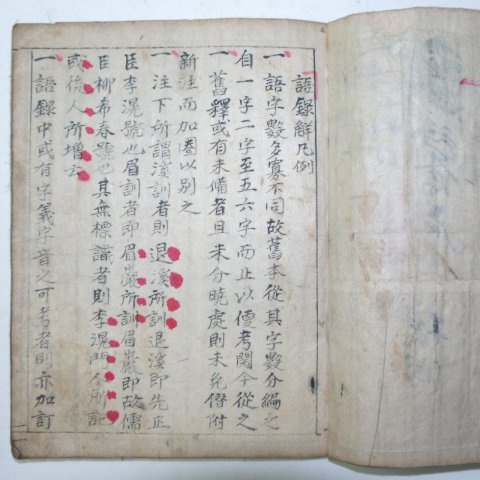 語録解凡例
一 語字數多寡不同故舊本從其字數分編之
自一字二字至五六字而止以便考閱今從之
一 舊釋或有未備者且未分曉處則未免僭附
新注而加圈以別之
一 注下所謂溪訓者則退溪所訓退溪即先正
臣李滉號也眉訓者即眉巖所訓眉巖即故儒
臣柳希春號也其無標識者則李滉門人所記
或後人所增云
一 語錄中或有字義字音之可考者則亦加訂